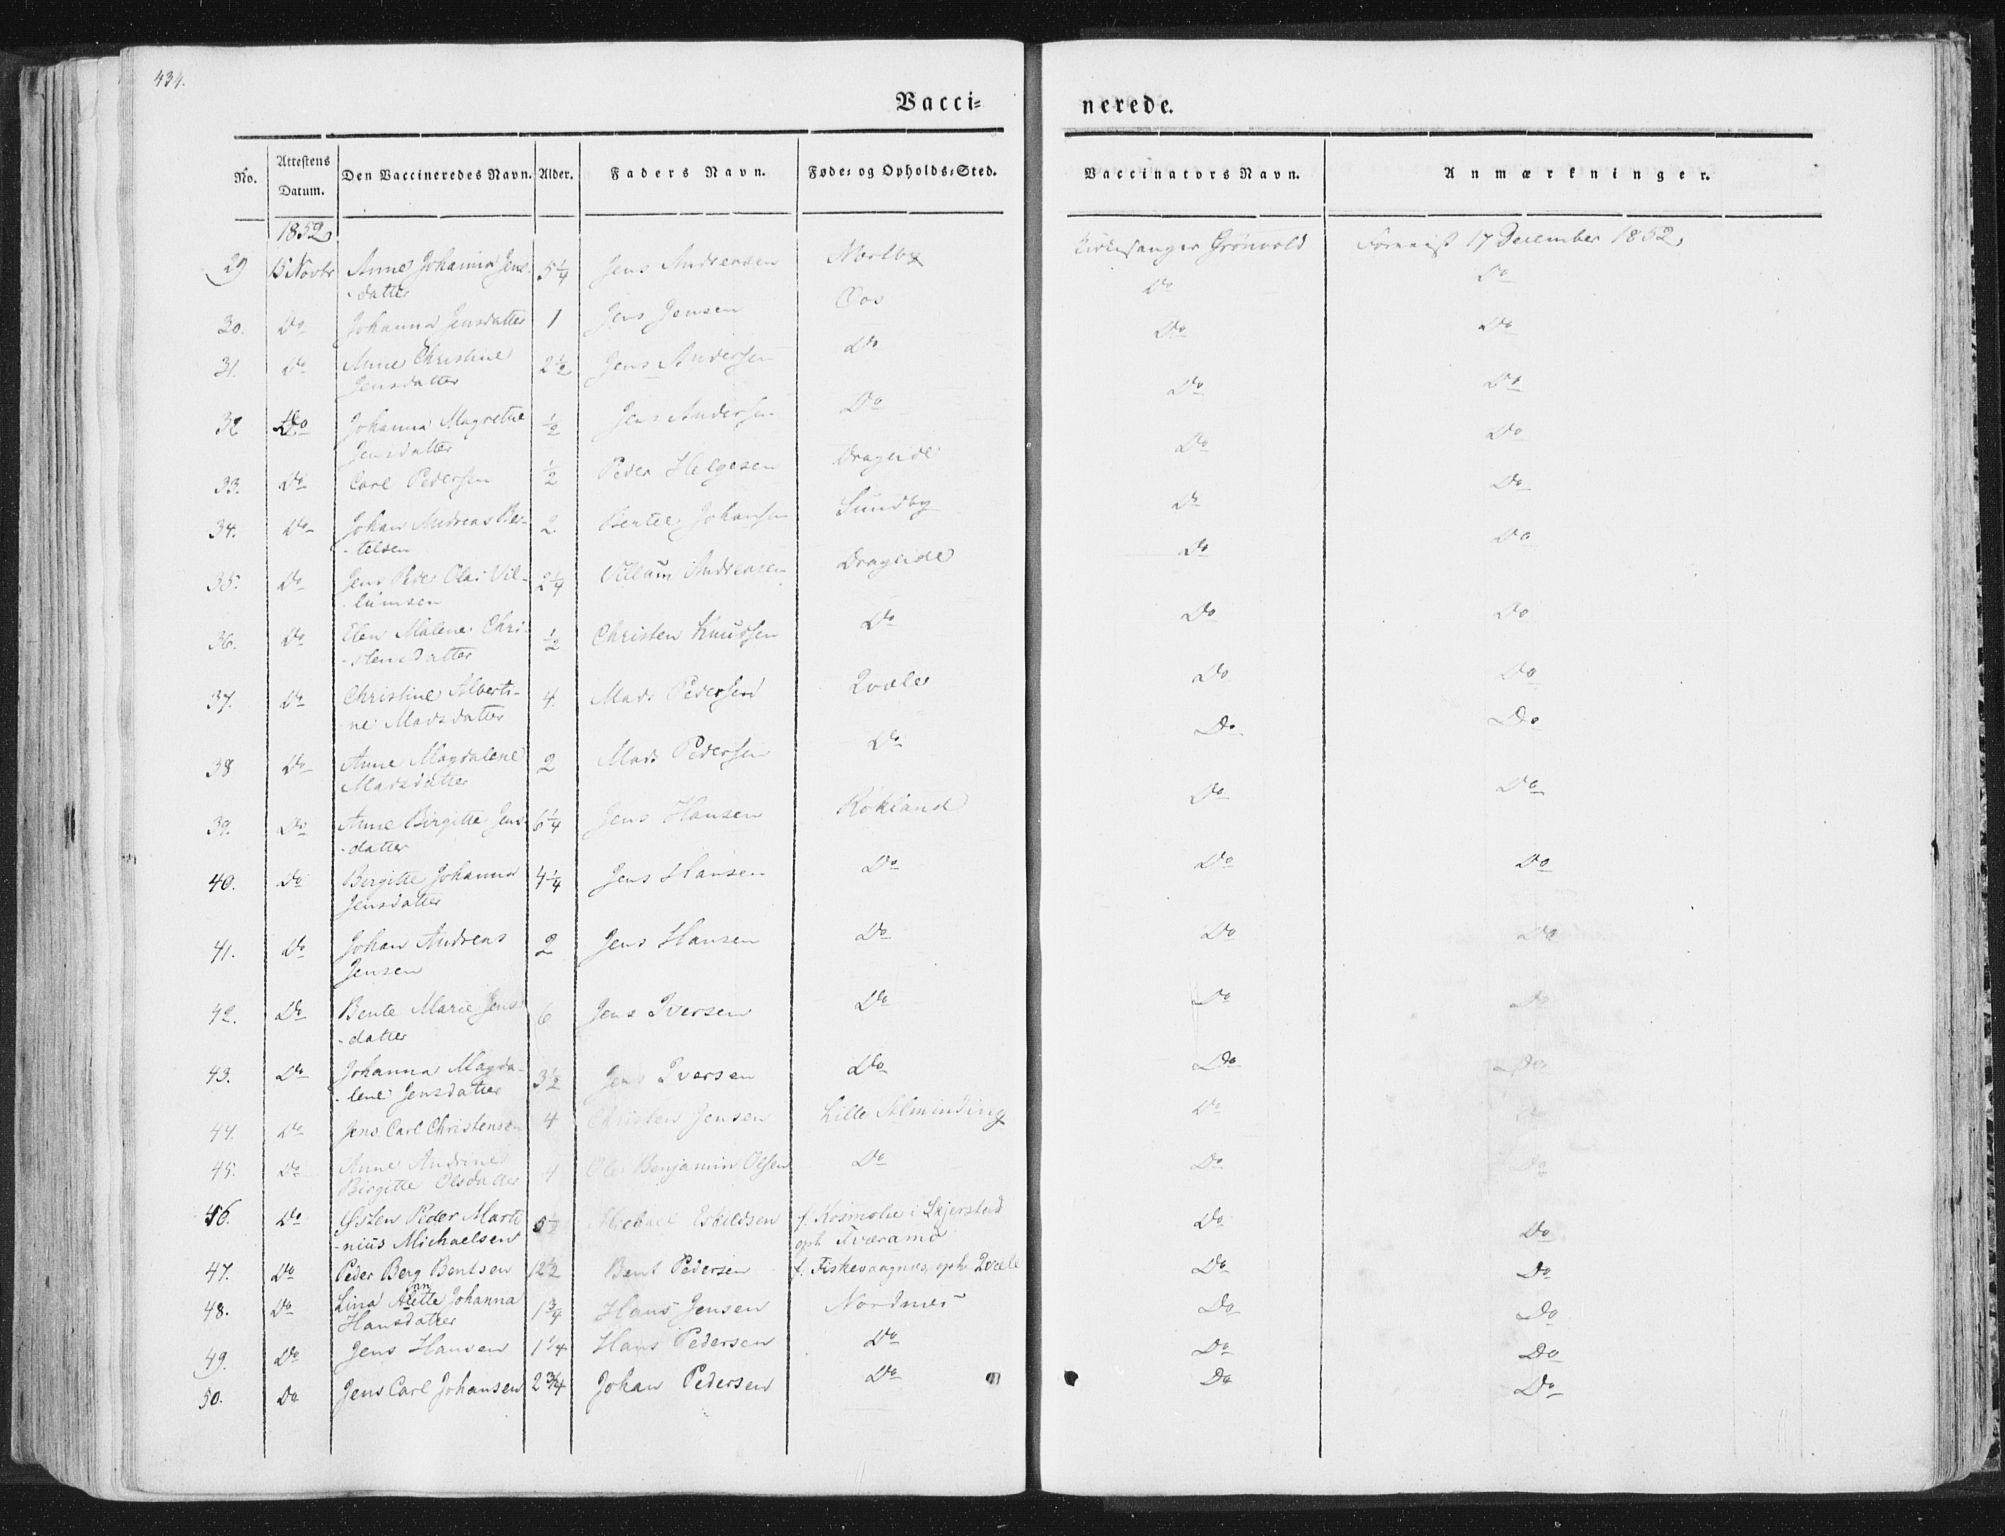 434.
Vacci= nerede.
No. Attestens Datum. Den Vaccineredes Navn. Alder. Faders Navn. Føde= og Opholds=Sted. Vaccinators Navn. Anmærkninger.
1852,
29 15 Novbr Anne Johanna Jens- 5 1/4 Jens Andreasen Kirkesanger Grönvold 17 December 1852,
-datter Do Do
30. Do Johanna Jensdatter 1 Jens Jensen Oos Do Do
31. Do Anne Christine 2 1/2 Jens Andersen Do Do Do
Jensdatter
32 Do Johanna Magrethe 1/2 Jens Andersen Do Do Do
Jensdatter
33. Do Carl Pedersen 1/2 Peder Helgesen Drageide Do Do
34. Do Johan Andreas Ber- 2. Bertel Johansen Sundby Do Do
-telsen
35. Do Jens Peder Olai Vil- 2 1/4 Villum Andreasen Drageide Do Do
-lumsen
36. Do Elen Malene Chri- 1/2 Christen Knudsen Do Do Do
-stensdatter
37. Do Christine Alberti- 4. Mads Pedersen Qvæle Do Do
-ne Madsdatter
38 Do Anne Magdalene 2 Mads Pedersen Do Do Do
Madsdatter
39. Do Anne Birgitte Jens- 6 1/4 Jens Hansen Rokland Do Do
-datter
40. Do Bergitte Johanna 4 1/4 Jens Hansen Do Do Do
Jensdatter
41. Do Johan Andreas 2 Jens Hansen Do Do Do
Jensen
42. Do Bente Marie Jens- 6 Jens Iversen Do Do Do
-datter
43. Do Johanna Magda- 3 1/2 Jens Iversen Do Do Do
-lene Jensdatter
44. Do Jens Carl Christensen 4 Christen Jensen Lille Alminding Do Do
45. Do Anne Andrine 4 Ole Benjamin Olsen Do Do Do
Birgitte Olsdatter
46. Do Østen Peder Marti- 5 1/2 Michael Eskildsen f. Kosmolie i Skjerstad Do Do
-nius Michaelsen oph. Tværamo
47. Do Peder Berg Bentsen 12 1/2 Bent Pedersen f. Fiskevaagnes, oph. Qvæle Do Do
48. Do Lina Anette Johanna 1 3/4 Hans Jensen Nordnes Do Do
Hansdatter
49. Do Jens Hansen 1 1/4 Hans Pedersen Do Do Do
50. Do Jens Carl Johansen 2 3/4 Johan Pedersen Do Do Do